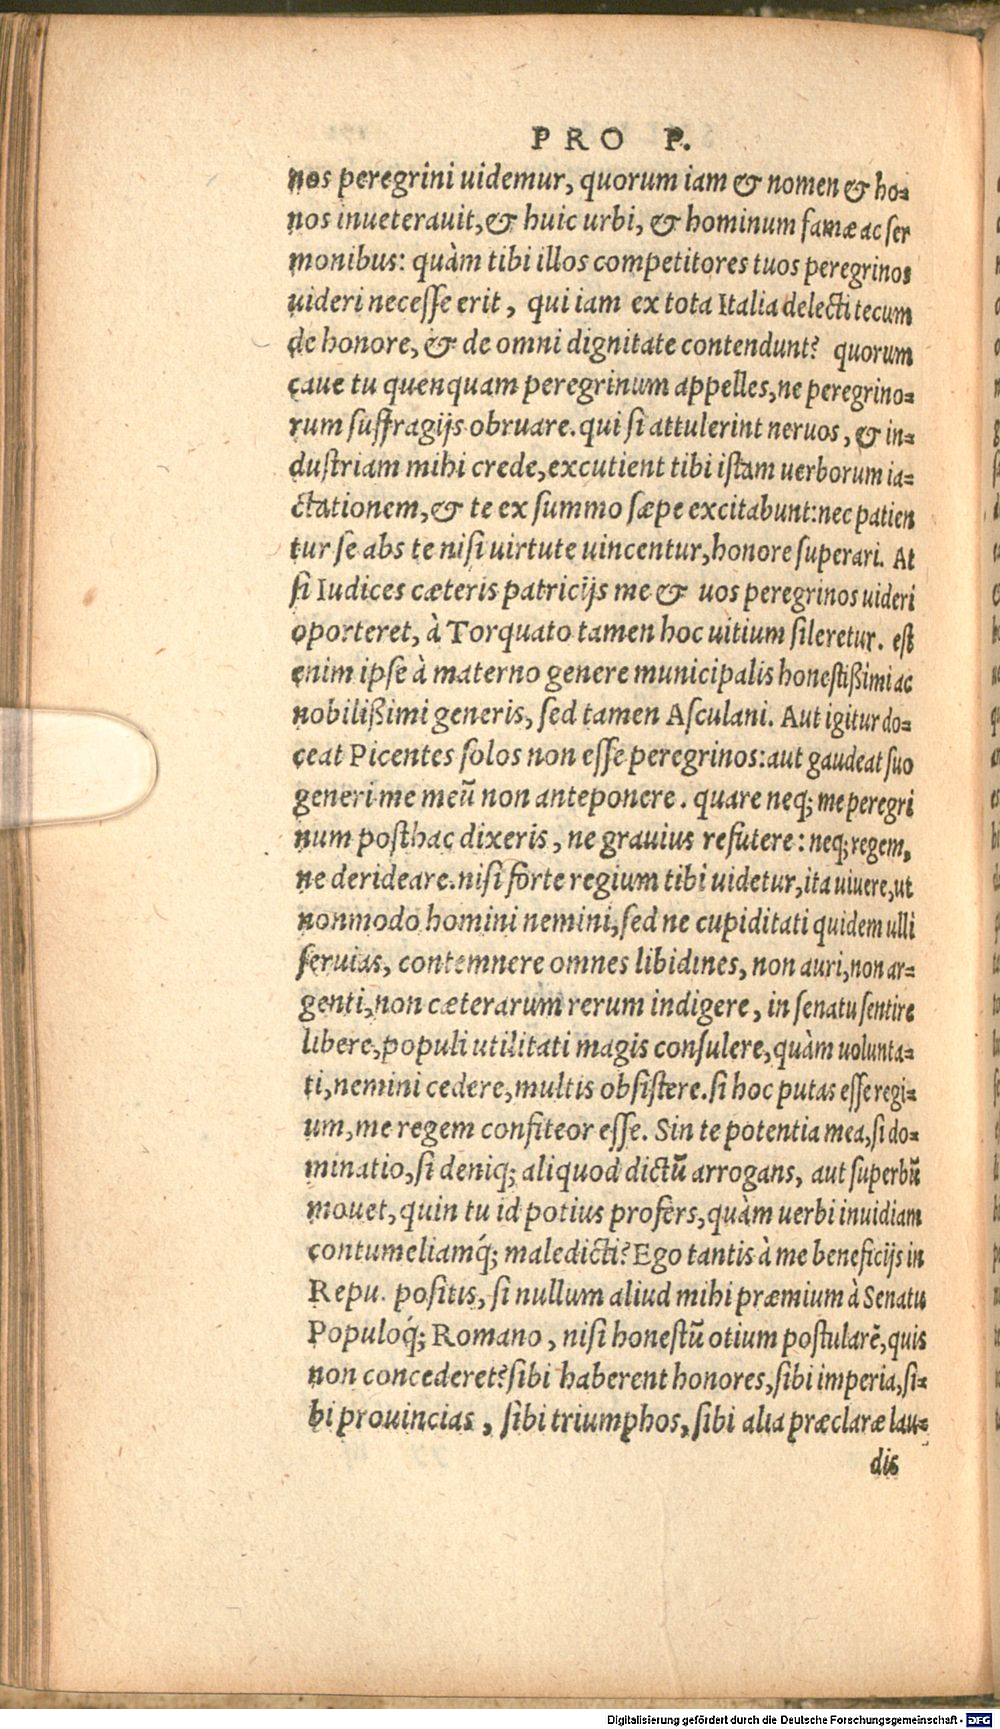 PRO P.
nos peregrini uidemur, quorum iam & nomen & ho=
nos inueterauit, & huic urbi, & hominum famæ ac ser
monibus: quàm tibi illos competitores tuos peregrinos
uideri necesse erit, qui iam ex tota Italia delecti tecum
de honore, & de omni dignitate contendunt? quorum
caue tu quenquam peregrinum appelles, ne peregrino=
rum suffragijs obruare. qui si attulerint neruos, & in=
dustriam mihi crede, excutient tibi istam uerborum ia=
ctationem, & te ex summo sæpe excitabunt: nec patien
tur se abs te nisi uirtute uincentur, honore superari. At
si Iudices cæteris patricijs me & uos peregrinos uideri
oporteret, à Torquato tamen hoc uitium sileretur. est
enim ipse à materno genere municipalis honestißimi ac
nobilißimi generis, sed tamen Asculani. Aut igitur do=
ceat Picentes solos non esse peregrinos: aut gaudeat suo
generi me meũ non anteponere. quare neq; me peregri
num posthac dixeris, ne grauius refutere: neq; regem,
ne derideare. nisi forte regium tibi uidetur, ita uiuere, ut
nonmodo homini nemini, sed ne cupiditati quidem ulli
seruias, contemnere omnes libidines, non auri, non ar=
genti, non cæterarum rerum indigere, in senatu sentire
libere, populi utilitati magis consulere, quàm uolunta=
ti, nemini cedere, multis obsistere. si hoc putas esse regi=
um, me regem confiteor esse. Sin te potentia mea, si do=
minatio, si deniq; aliquod dictũ arrogans, aut superbũ
mouet, quin tu id potius profers, quàm uerbi inuidiam
contumeliamq́; maledicti? Ego tantis à me beneficijs in
Repu. positis, si nullum aliud mihi præmium à Senatu
Populoq́; Romano, nisi honestũ otium postularẽ, quis
non concederet? sibi haberent honores, sibi imperia, si=
bi prouincias, sibi triumphos, sibi alia præclaræ lau=
dis
Digitalisierung gefördert durch die Deutsche Forschungsgemeinschaft - DFG